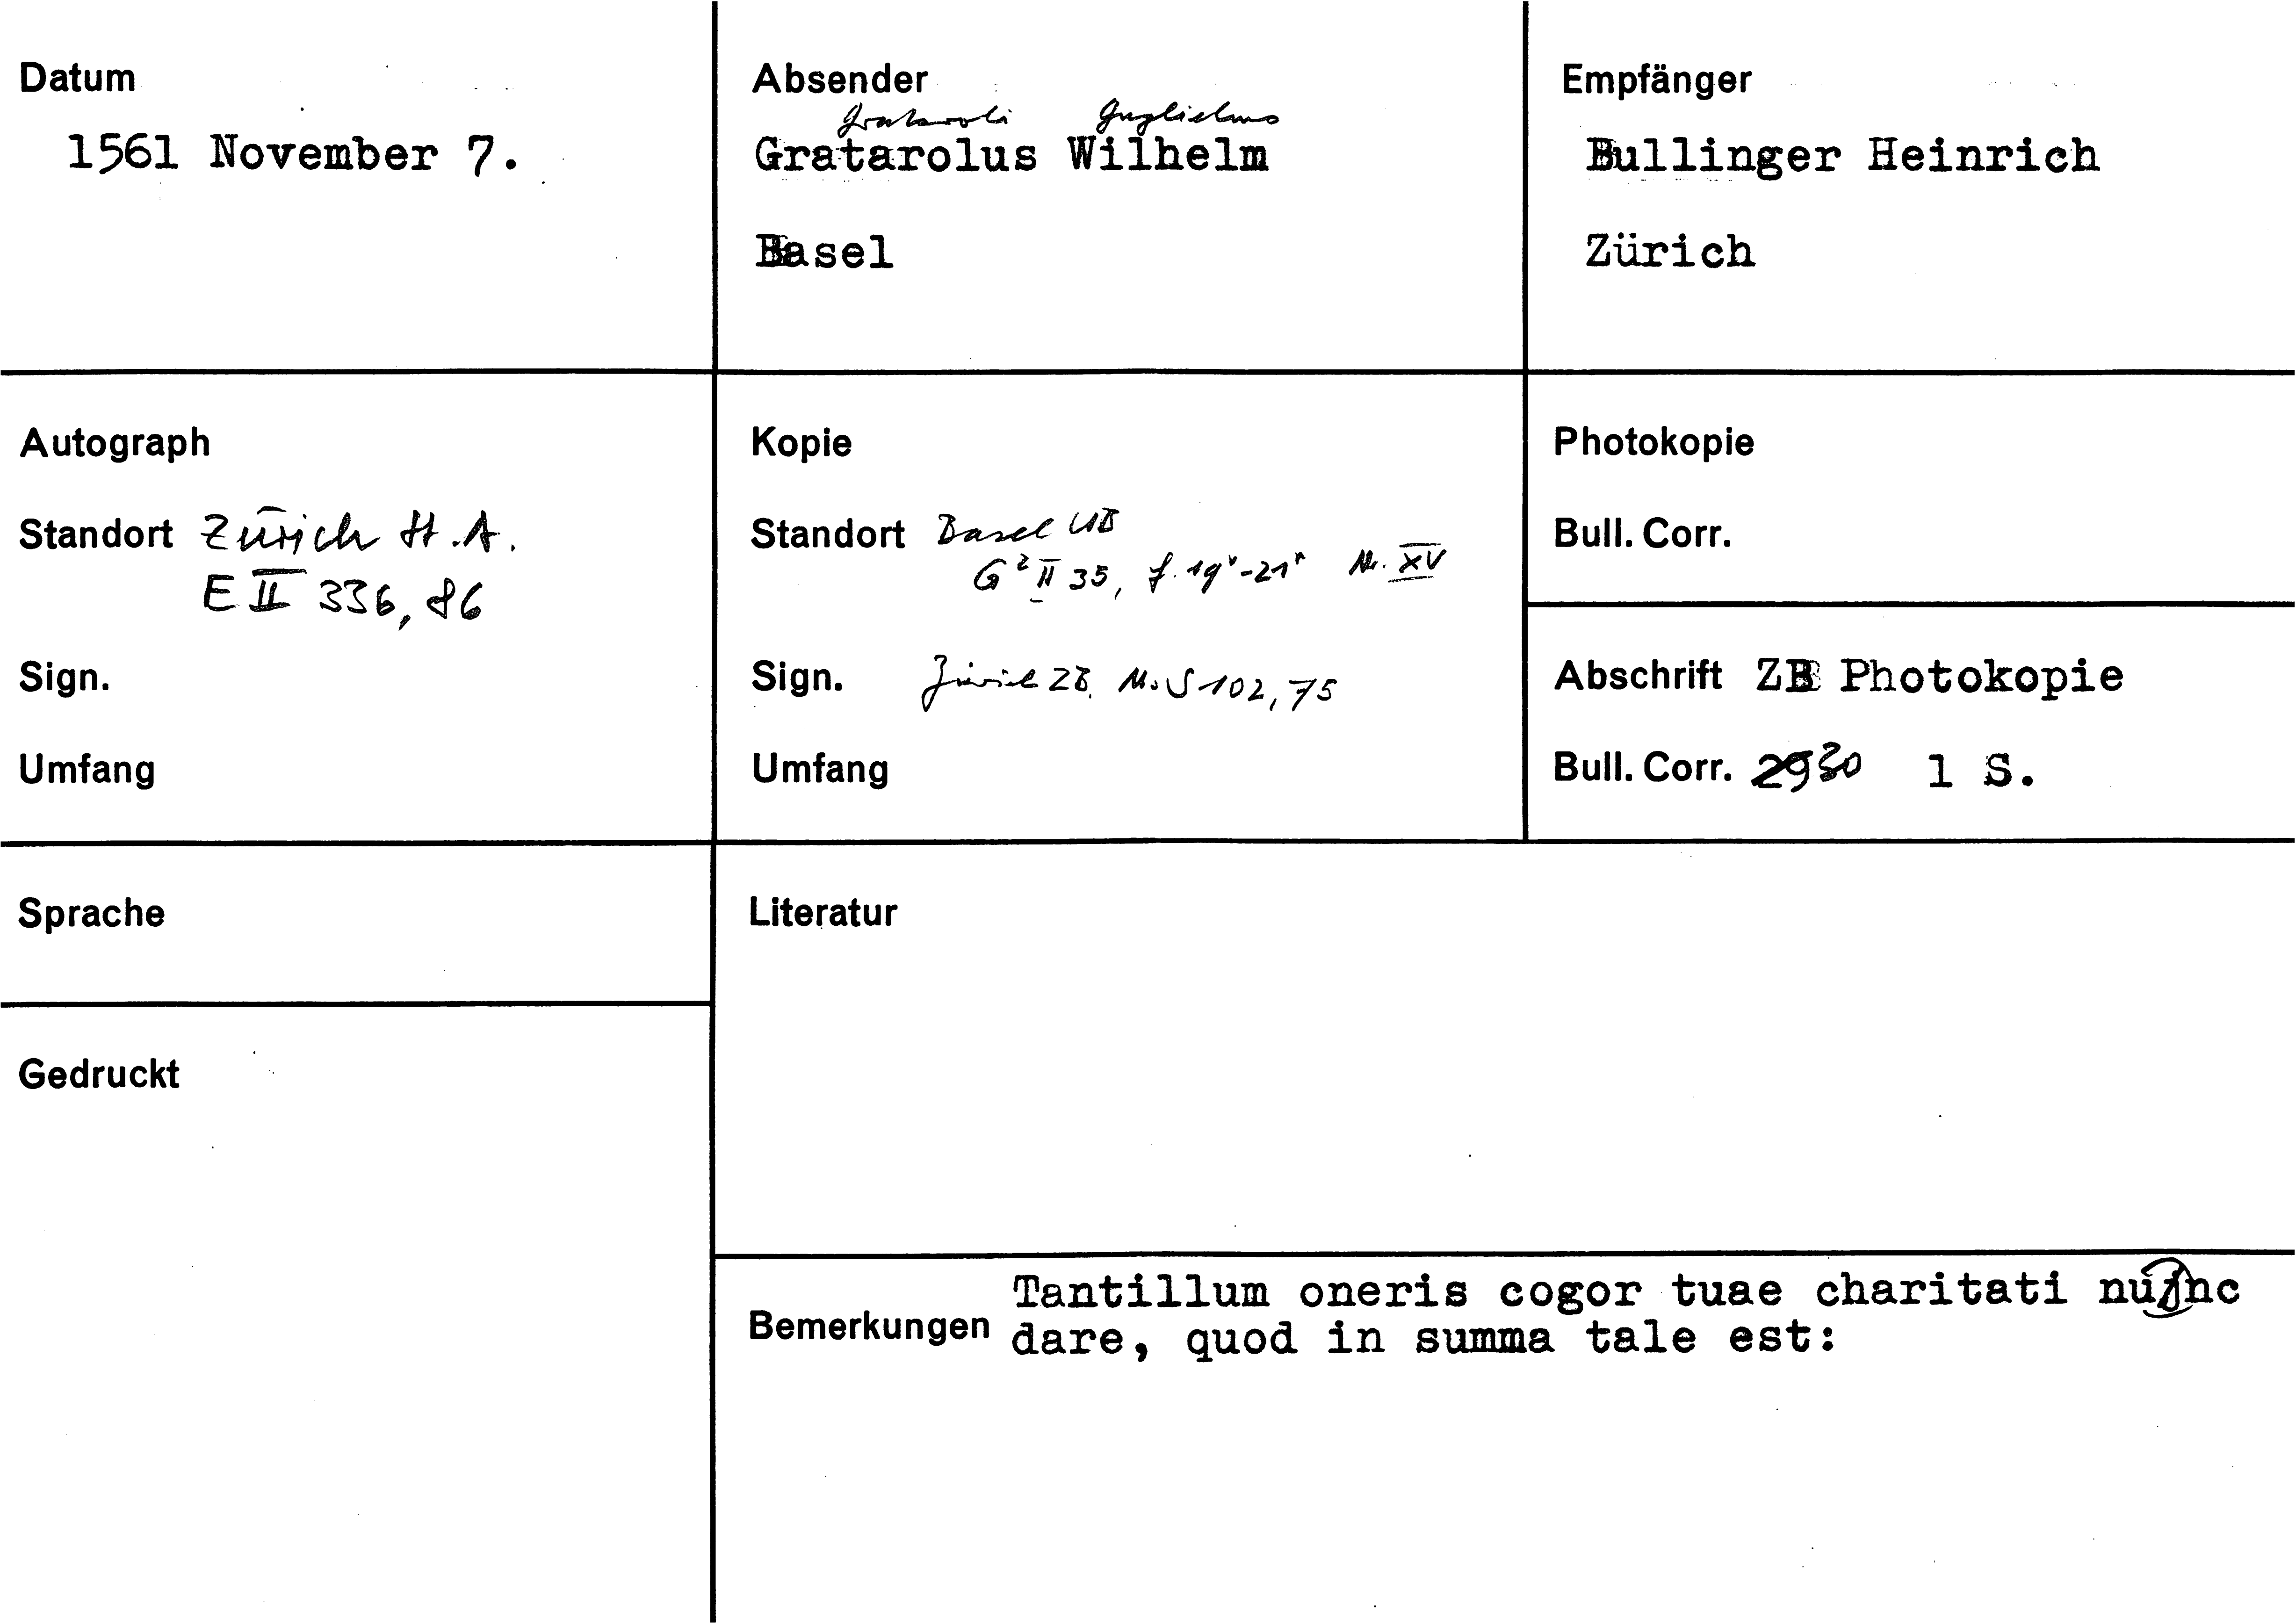 Datum
1561 November 7.
Absender
Grataroli Guglielmo
Gratarolus Wilhelm
Basel
Empfänger
Bullinger Heinrich
Zürich
Autograph
Standort Zürich St.A.
E II 336, 86
Sign.
Umfang
Kopie
Standort Basel UB
G² II 35, f. 19v-21r Nr. XV
Sign. Zürich ZB. Ms S 102, 75
Umfang
Photokopie
Bull. Corr.
Abschrift ZB Photokopie
Bull. Corr. 2930 1 S.
Sprache
Gedruckt
Literatur
Bemerkungen
Tantillum oneris cogor tuae charitati nunc
dare, quod in summa tale est: